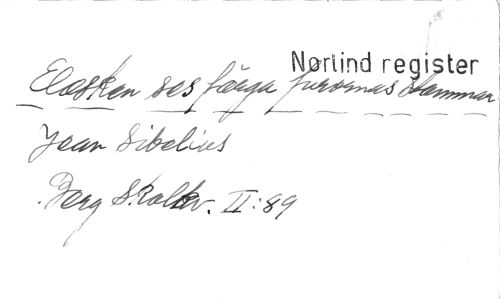 Nørlind register
Elden ses färga furornas stammar
Jean Sibelius
Berg Skolkv. II:89